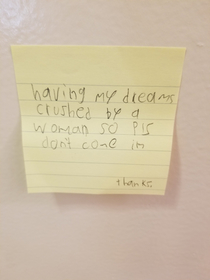 having my dreams
crushed by a
woman so pls
dont come in
thanks.